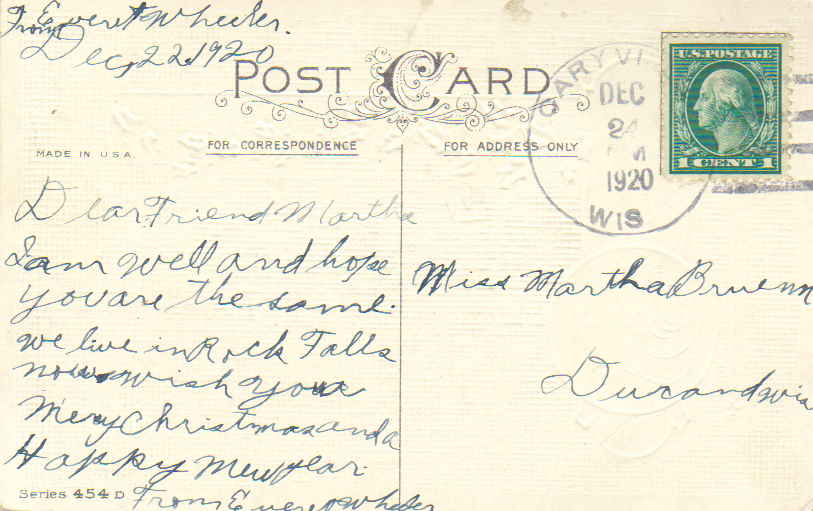 From Everet Wheeler.
Dec, 22. 1920
POST CARD
CARYVI
DEC
24
M
1920
WIS
U.S. POSTAGE
1 CENT 1
FOR CORRESPONDENCE
FOR ADDRESS ONLY
MADE IN U.S.A.
Dear Friend Martha
I am well and hope
you are the same.
we live in Rock Falls
now wish you
Mery Christmas and a
Happy New year.
From Everet Wheeler
Series 454 D
Miss Martha Bruenn
Durand Wis